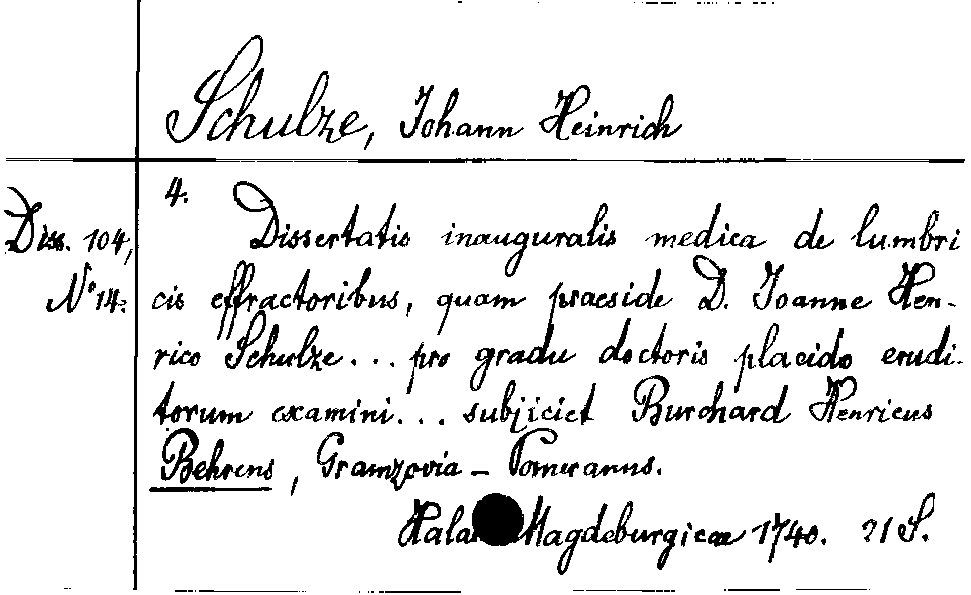 Schulze, Johann Heinrich
4.
Diss. 104, Dissertatio inauguralis medica de lumbri
No 14. cis effractoribus, quam praeside D. Joanne Hen-
rico Schulze... pro gradu doctoris placido erudi-
torum examini... subjiciet Burchard Henricus
Behrens, Gramzovia - Pomeranus.
Halae Magdeburgicae 1740. 21 S.